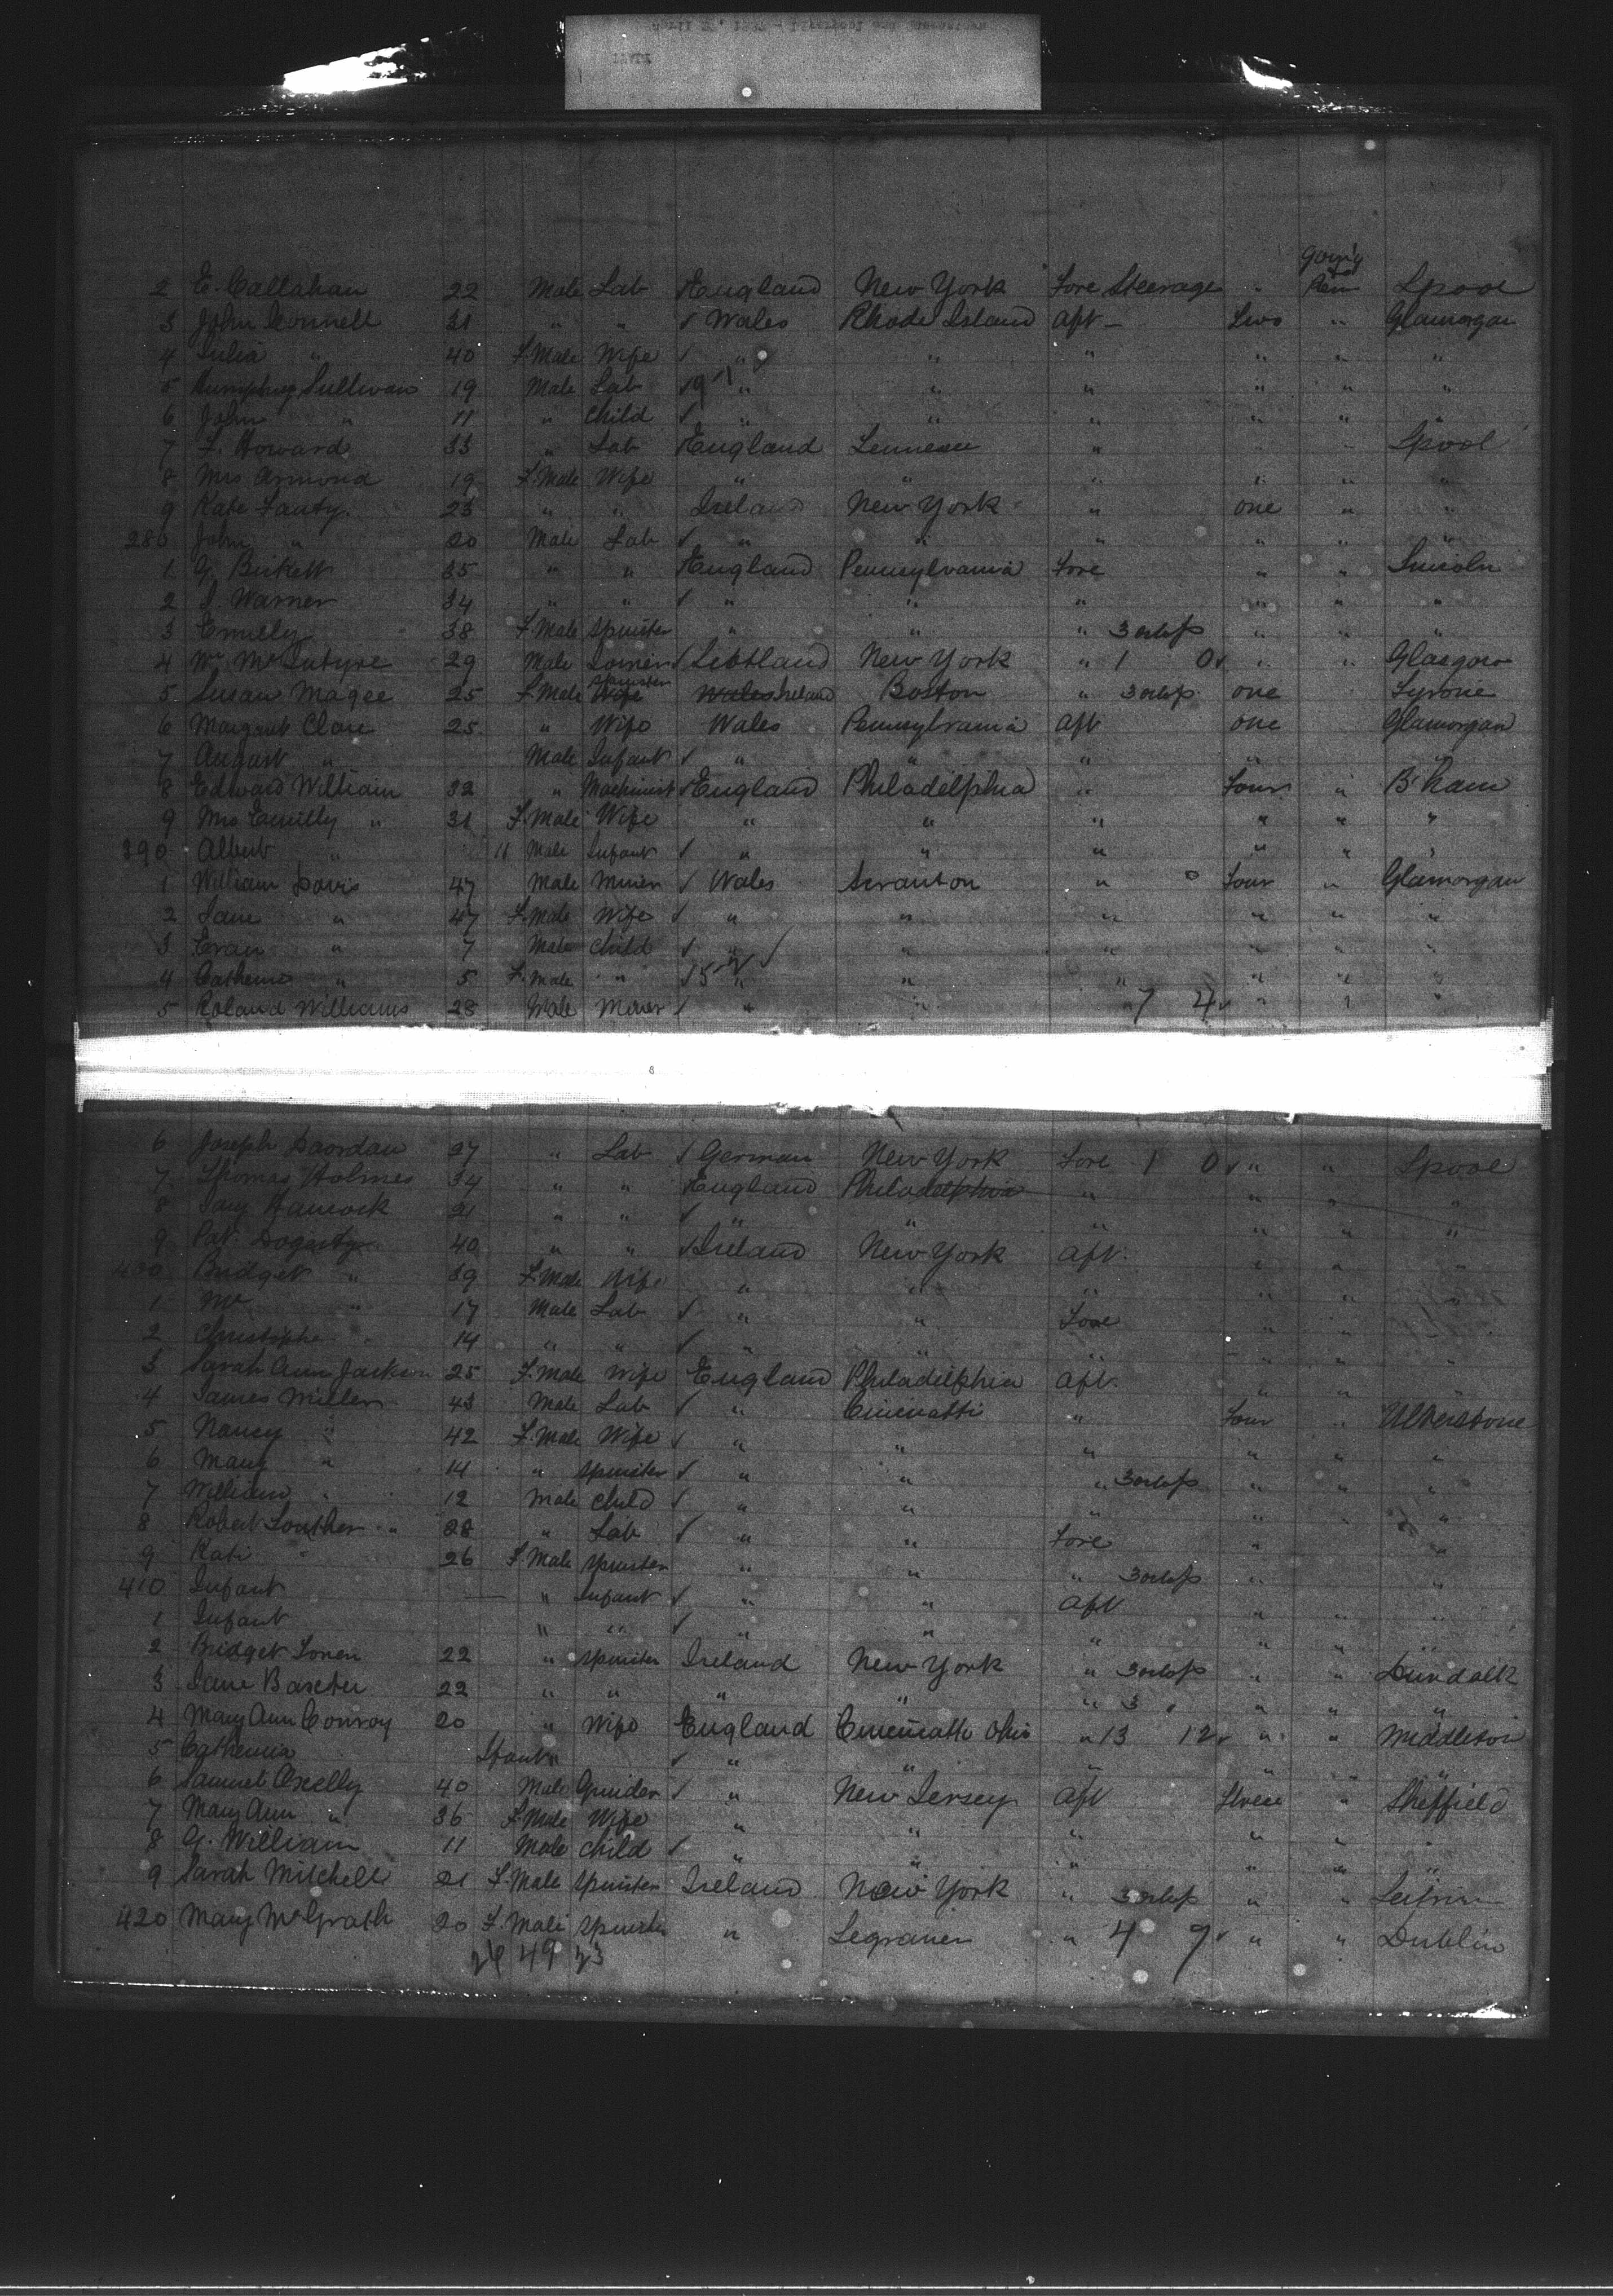 going
2 E. Callahan 22 Male Lab England New York Fore Steerage " Rem Lpool
3 John Connell 31 " " Wales Rhode Island Aft Two " Glamorgan
4 Julia " 40 F. Male Wife " " " " " "
5 Humphrey Sullivan 19 Male Lab " " " " " "
6 John " 11 " Child " " " " " "
7 F. Howard 33 " Lab England " Lpool
8 Mrs Armond 19 F. Male Wife " " " " " "
9 Kate Fanty 23 " " Ireland New York " one " "
280 John " 20 Male Lab " " " " " "
1 G. Birkett 35 " " England Pennsylvania Fore " " Lincoln
2 J. Warner 34 " " " " " " " "
3 Emily 38 F. Male Spinster " " " " " "
4 Wm McIntyre 29 Male Scotland New York " 1 0 " " Glasgow
Spinster
5 Susan Magee 25 F. Male Wife Wales Ireland Boston " one " Tyrone
6 Margaret Clare 25 " Wife Wales Pennsylvania Aft one Glamorgan
7 August " Male Infant " " " " " "
8 Edward William 32 " Machinist England Philadelphia " Four " B'ham
9 Mrs Emilly " 31 F. Male Wife " " " " " "
390 Albert " 11 Male Infant " " " " " "
1 William Davis 47 Male Miner Wales Scranton " Four " Glamorgan
2 Jane " 47 F. Male Wife " " " " " "
3 Evan " 7 Male Child " " " " " "
4 Catherine " 5 F. Male " " " " " " "
5 Roland Williams 28 Male Miner " " " 7 4 " "
6 Joseph 27 " Lab German New York Fore 1 0 " " Lpool
7 Thomas Holmes 34 " " England Philadelphia " " " "
8 Hancock 21 " " " " " " " "
9 Pat Dogerty 40 " " Ireland New York Aft. " " "
400 Bridget " 39 F. Male Wife " " " " " "
1 " 17 Male Lab " " Fore " " "
2 Christopher " 14 " " " " " " " "
3 Sarah Ann Jackson 25 F. Male Wife England Philadelphia Aft. " " "
4 James Miller 43 Male Lab " Cincinatti " Four " Ulverstone
5 Nancy " 42 F. Male Wife " " " " " "
6 Mary " 14 " Spinster " " " " " "
7 William " 12 Male Child " " " " " "
8 Robert Souther " 28 " Lab " " Fore " "
9 Kati " 26 F. Male Spinster " " " " "
410 Infant — " Infant " " Aft " " "
1 Infant " " " " " " " "
2 Bridget 22 " Spinster Ireland New York " " " Dundalk
3 Jane Baxter 22 " " " " " 3 " " " "
4 Mary Ann Conroy 20 " Wife England Cincinatti Ohio " 13 12 " " Middleton
5 Catherine " " " " " "
6 Samuel 40 Male Grinder " New Jersey Aft three " Sheffield
7 Mary Ann " 36 F. Male Wife " " " " " "
8 G. William 11 Male Child " " " " " "
9 Sarah Mitchell 21 F. Male Spinster Ireland New York " " " Leitrim
420 Mary McGrath 20 F. Male Spinster " " 4 9 " " Dublin
49 23